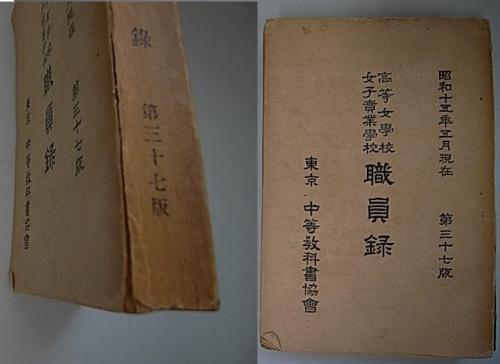 錄
第三十七版
第三十七版
職員錄
東京 中等教科書協會
昭和十五年五月現在 第三十七版
高等女學校
女子實業學校
職員錄
東京 中等教科書協會